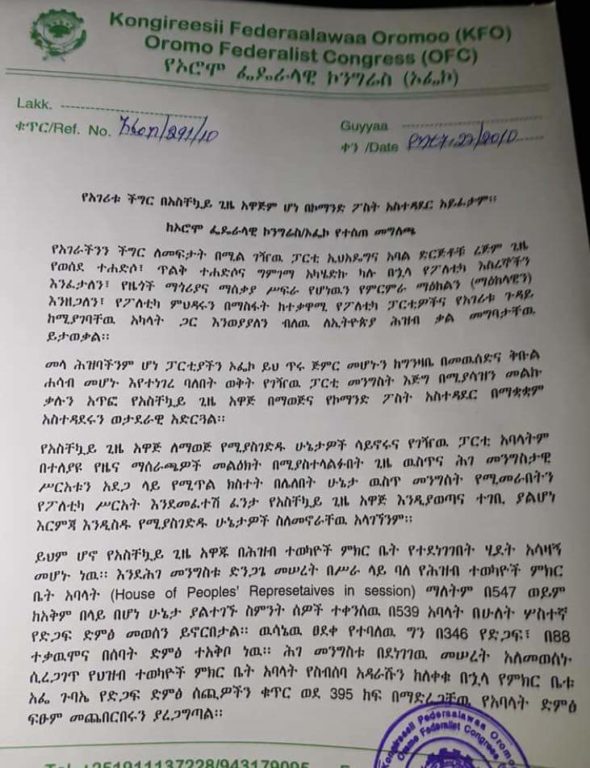 Kongireesii Federaalawaa Oromoo (KFO)
Oromo Federalist Congress (OFC)
የኦሮሞ ፌዴራላዊ ኮንግሬስ (ኦፌኮ)
Lakk.
ቁጥር/Ref. No. /291/10
Guyyaa
ቀን /Date
የአገሪቱ ችግር በአስቸኳይ ጊዜ አዋጅም ሆነ በኮማንድ ፖስት አስተዳደር አይፈታም፡፡
ከኦሮሞ ፌዴራላዊ ኮንግሬስ/ኦፌኮ የተሰጠ መግለጫ
የአገራችንን ችግር ለመፍታት በሚል ገዥዉ ፓርቲ ኢህአዴግና አባል ድርጅቶቹ ረጅም ጊዜ
የወሰደ ተሐድሶ፣ ጥልቅ ተሐድሶና ግምገማ አካሄድኩ ካሉ በኋላ የፖለቲካ እስረኞችን
እንፈታለን፣ የዜጎች ማጎሪያና ማሰቃያ ሥፍራ የሆነዉን የምርምራ ማዕከልን (ማዕከላዊን)
እንዘጋለን፣ የፖለቲካ ምህዳሩን በማስፋት ከተቃዋሚ የፖለቲካ ፓርቲዎችና የአገሪቱ ጉዳይ
ከሚያገባቸዉ አካላት ጋር እንወያያለን ብለዉ ለኢትዮጵያ ሕዝብ ቃል መግባታቸዉ
ይታወቃል፡፡
መላ ሕዝባችንም ሆነ ፓርቲያችን ኦፌኮ ይህ ጥሩ ጅምር መሆኑን ከግንዛቤ በመዉሰድና ቅቡል
ሐሳብ መሆኑ እየተነገረ ባለበት ወቅት የገዥዉ ፓርቲ መንግስት እጅግ በሚያሳዝን መልኩ
ቃሉን አጥፎ የአስቸኳይ ጊዜ አዋጅ በማወጅና የኮማንድ ፖስት አስተዳደር በማቋቋም
አስተዳደሩን ወታደራዊ አድርጓል፡፡
የአስቸኳይ ጊዜ አዋጅ ለማወጅ የሚያስገድዱ ሁኔታዎች ሳይኖሩና የገዥዉ ፓርቲ አባላትም
በተለያዩ የዜና ማሰራጫዎች መልዕክት በሚያስተላልፉበት ጊዜ ዉስጥና ሕገ መንግስታዊ
ሥርአቱን አደጋ ላይ የሚጥል ክስተት በሌለበት ሁኔታ ዉስጥ መንግስት የሚመራበትን
የፖለቲካ ሥርአት እንደመፈተሽ ፈንታ የአስቸኳይ ጊዜ አዋጅ እንዲያወጣና ተገቢ ያልሆነ
እርምጃ እንዲስዱ የሚያስገድዱ ሁኔታዎች ስለመኖራቸዉ አላገኘንም፡፡
ይህም ሆኖ የአስቸኳይ ጊዜ አዋጁ በሕዝብ ተወካዮች ምክር ቤት የተደነገገበት ሂደት አሳዛኝ
መሆኑ ነዉ፡፡ እንደሕገ መንግስቱ ድንጋጌ መሠረት በሥራ ላይ ባለ የሕዝብ ተወካዮች ምክር
ቤት አባላት (House of Peoples' Represetaives in session) ማለትም በ547 ወይም
ከአቅም በላይ በሆነ ሁኔታ ያልተገኙ ስምንት ሰዎች ተቀንሰዉ በ539 አባላት በሁለት ሦስተኛ
የድጋፍ ድምፅ መወሰን ይኖርበታል፡፡ ዉሳኔዉ ፀደቀ የተባለዉ ግን በ346 የድጋፍ፣ በ88
ተቃዉሞና በሰባት ድምፅ ተአቅቦ ነዉ፡፡ ሕገ መንግስቱ በደነገገዉ መሠረት አለመወሰኑ
ሲረጋገጥ የህዝብ ተወካዮች ምክር ቤት አባላት የስብሰባ አዳራሹን ከለቀቁ በኋላ የምክር ቤቱ
አፌ ጉባኤ የድጋፍ ድምፅ ሰጪዎችን ቁጥር ወደ 395 ከፍ በማድረጋቸዉ የአባላት ድምፅ
ፍፁም መጨበርበሩን ያረጋግጣል፡፡
Kongireesii Federaalawaa Oromoo
Oromo Federalist Congress
Tel +251911137228/943179095